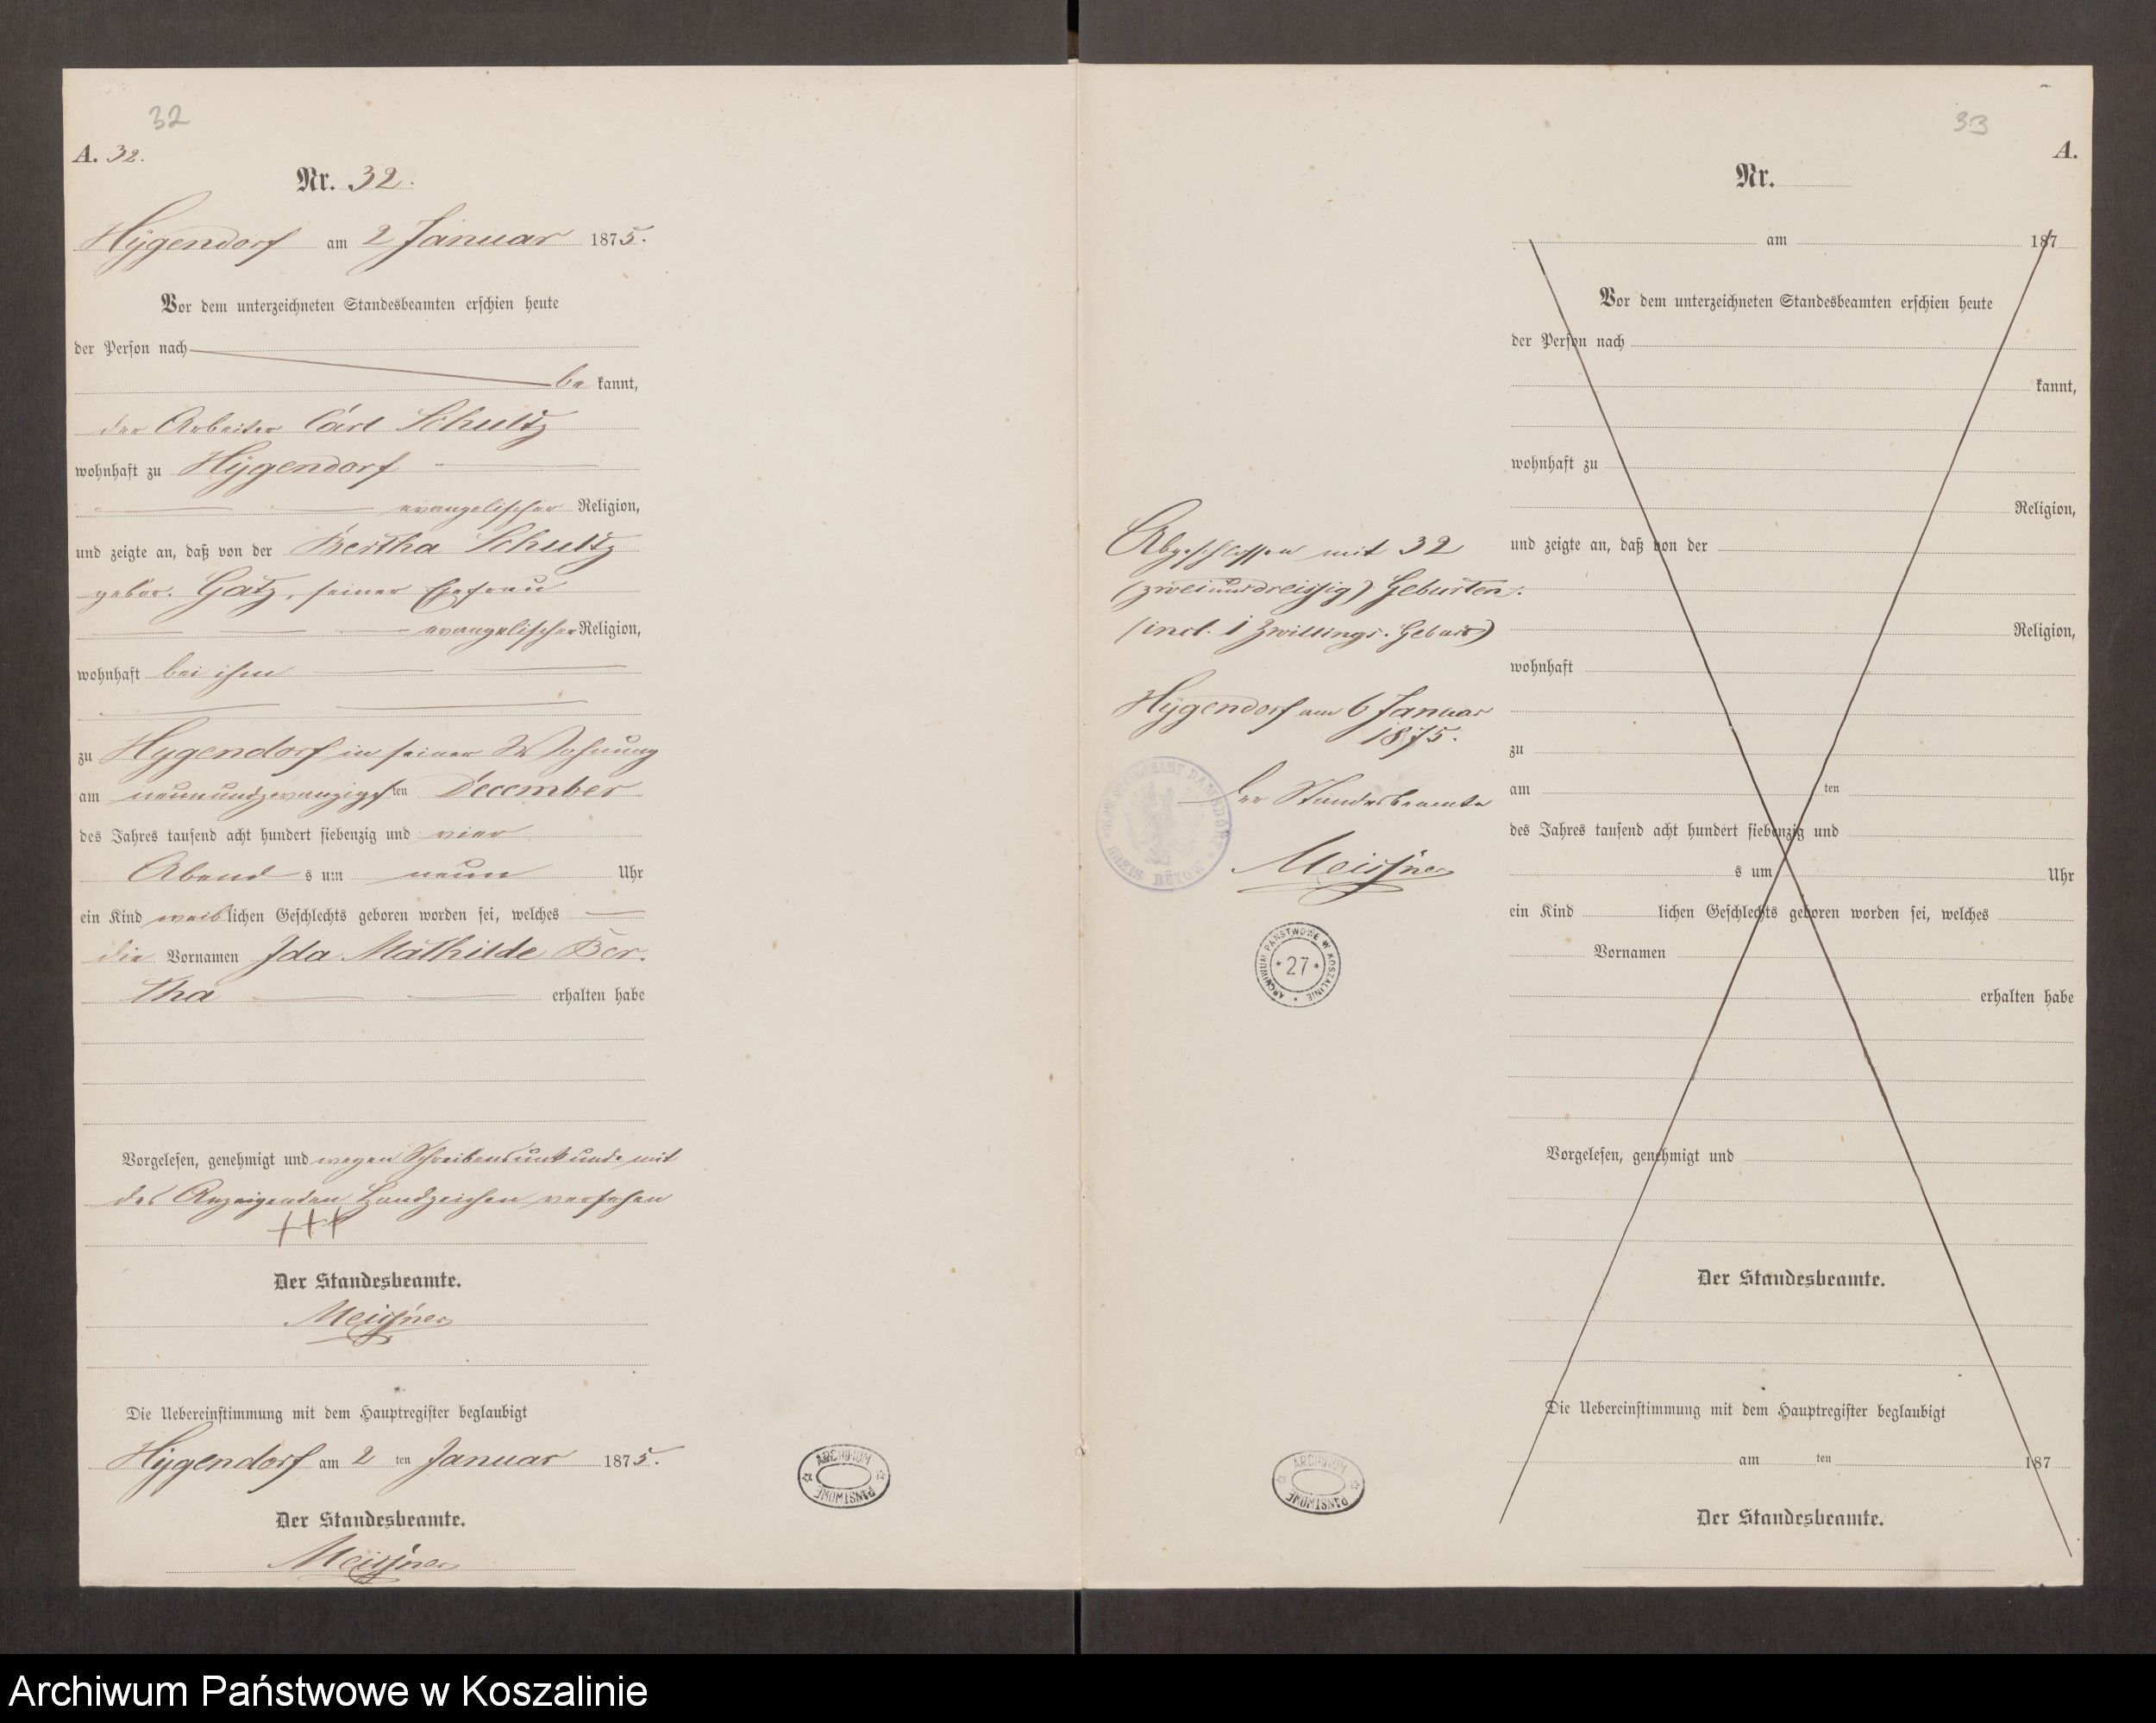 32
A. 32.
Nr. 32.
Hÿgendorf am 2 Januar 1875.
Vor dem unterzeichneten Standesbeamten erschien heute
der Person nach
be kannt,
der Arbeiter Carl Schultz
wohnhaft zu Hÿgendorf
evangelischer Religion,
und zeigte an, daß von der Bertha Schultz
gebor. Gatz, seiner Ehefrau
evangelischer Religion,
wohnhaft bei ihm
zu Hygendorf in seiner Wohnung
am neunundzwanzigsten December
des Jahres tausend acht hundert siebenzig und vier
Abend s um neun Uhr
ein Kind weiblichen Geschlechts geboren worden sei, welches
die Vornamen Ida Mathilde Ber-
tha erhalten habe
Vorgelesen, genehmigt und wegen Schreibensunkunde mit
des Anzeigenden Handzeichen versehen
+++
Der Standesbeamte.
Meissner
Die Uebereinstimmung mit dem Hauptregister beglaubigt
Hÿgendorf am 2 ten Januar 1875.
Der Standesbeamte.
Meissner
ARCHIWUM PAŃSTWOWE
Abgeschlossen mit 32
(zweiunddreissig) Geburten.
(incl. 1 Zwillings-Geburt)
Hÿgendorf am 6 Januar
1875.
Der Standesbeamte
Meissner
ARCHIWUM PAŃSTWOWE W KOSZALINIE
* 27 *
ARCHIWUM PAŃSTWOWE
33
A.
Nr.
am 187
Vor dem unterzeichneten Standesbeamten erschien heute
der Person nach
kannt,
wohnhaft zu
Religion,
und zeigte an, daß von der
Religion,
wohnhaft
zu
am ten
des Jahres tausend acht hundert siebenzig und
s um Uhr
ein Kind lichen Geschlechts geboren worden sei, welches
Vornamen
erhalten habe
Vorgelesen, genehmigt und
Der Standesbeamte.
Die Uebereinstimmung mit dem Hauptregister beglaubigt
am ten 187
Der Standesbeamte.
Archiwum Państwowe w Koszalinie